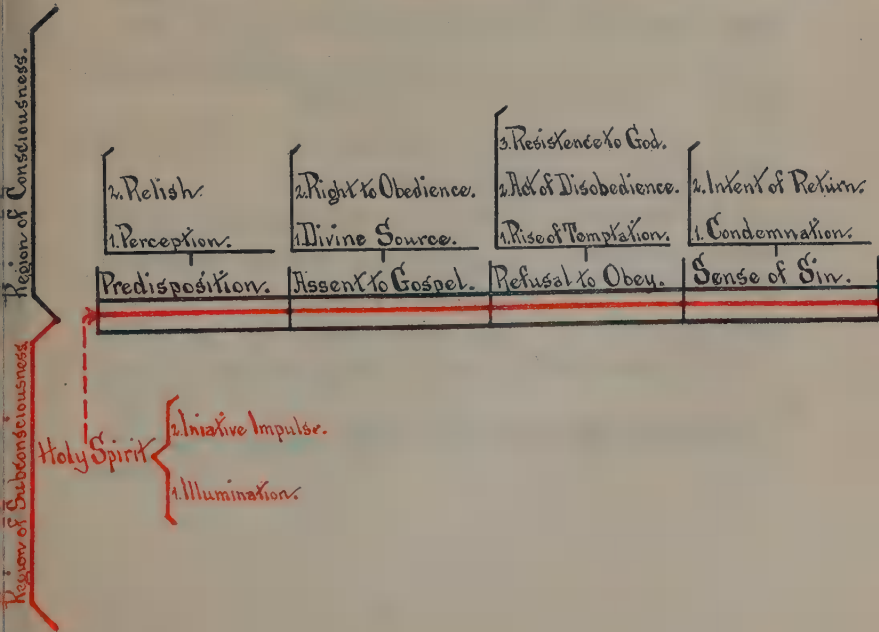 Region of Consciousness.
2. Relish.
1. Perception.
Predisposition.
2. Right to Obedience.
1. Divine Source.
Assent to Gospel.
3. Resistence to God.
2. Act of Disobedience.
1. Rise of Temptation.
Refusal to Obey.
2. Intent of Return.
1. Condemnation.
Sense of Sin.
Region of Subconsciousness.
Holy Spirit
2. Iniative Impulse.
1. Illumination.